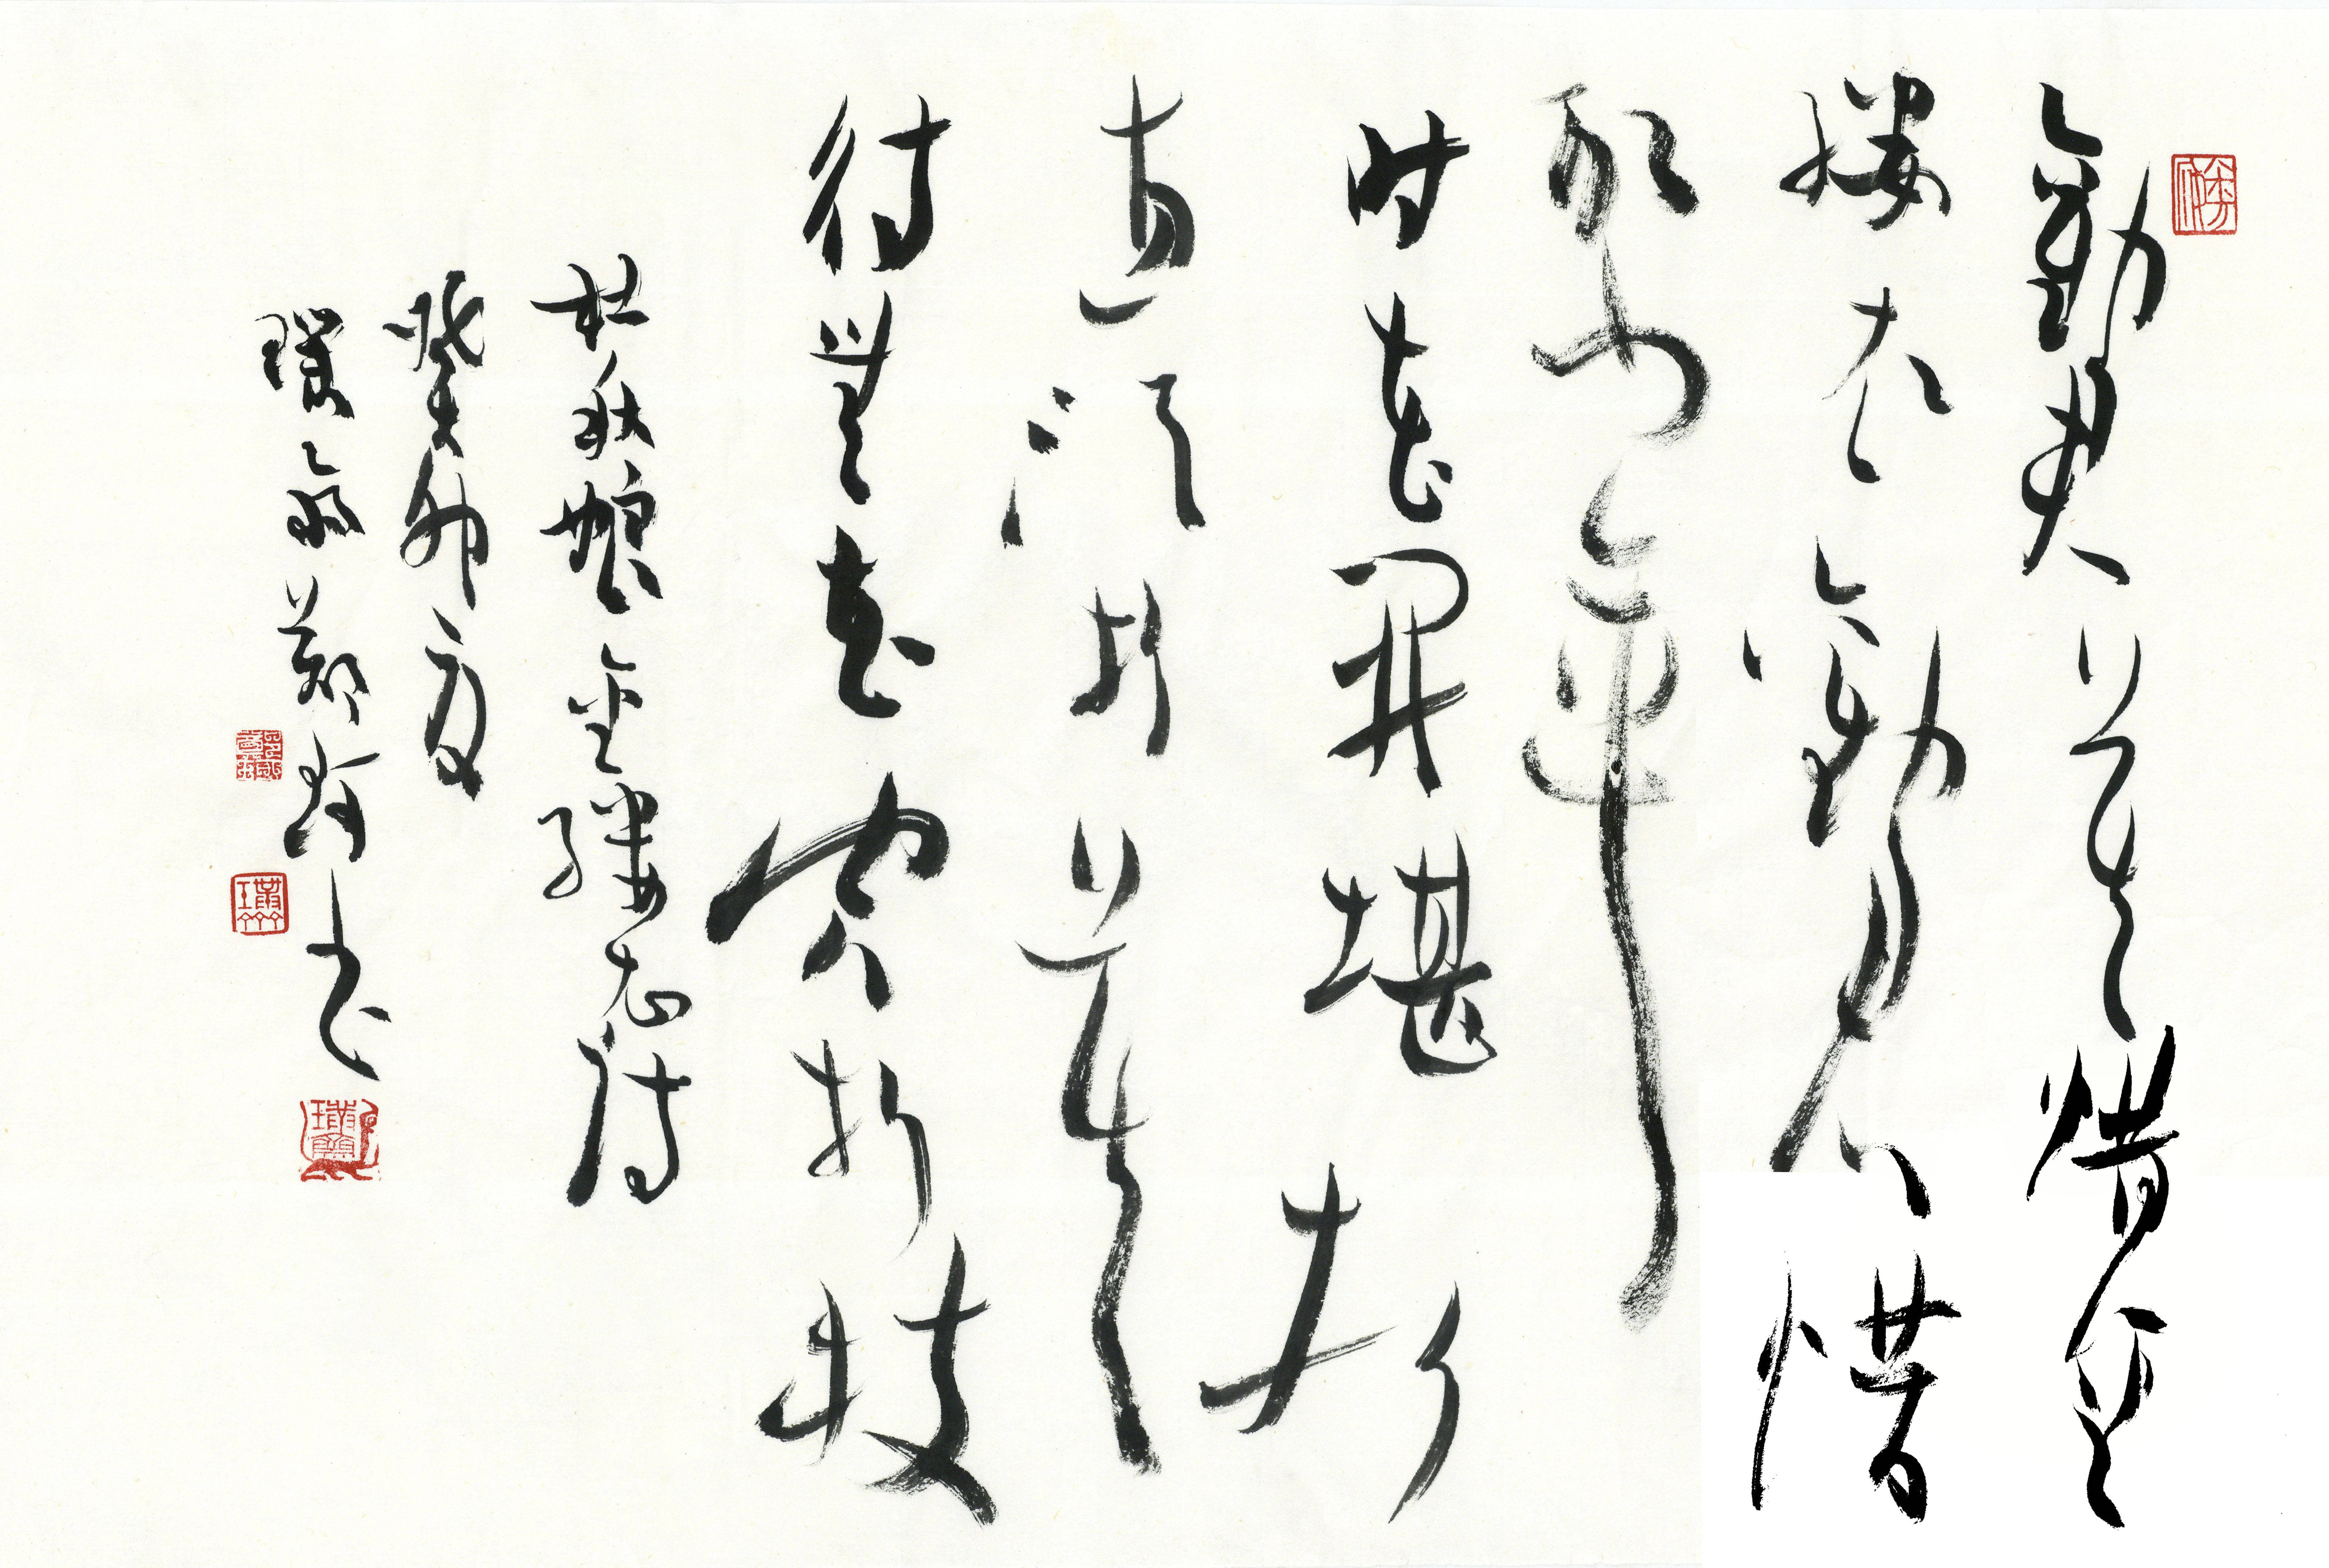 勸君莫惜金
縷衣勸君惜
取少年
時花開堪折
直須折莫
待無花空折枝
杜秋娘金縷衣詩
癸卯夏
璞翁鄭書